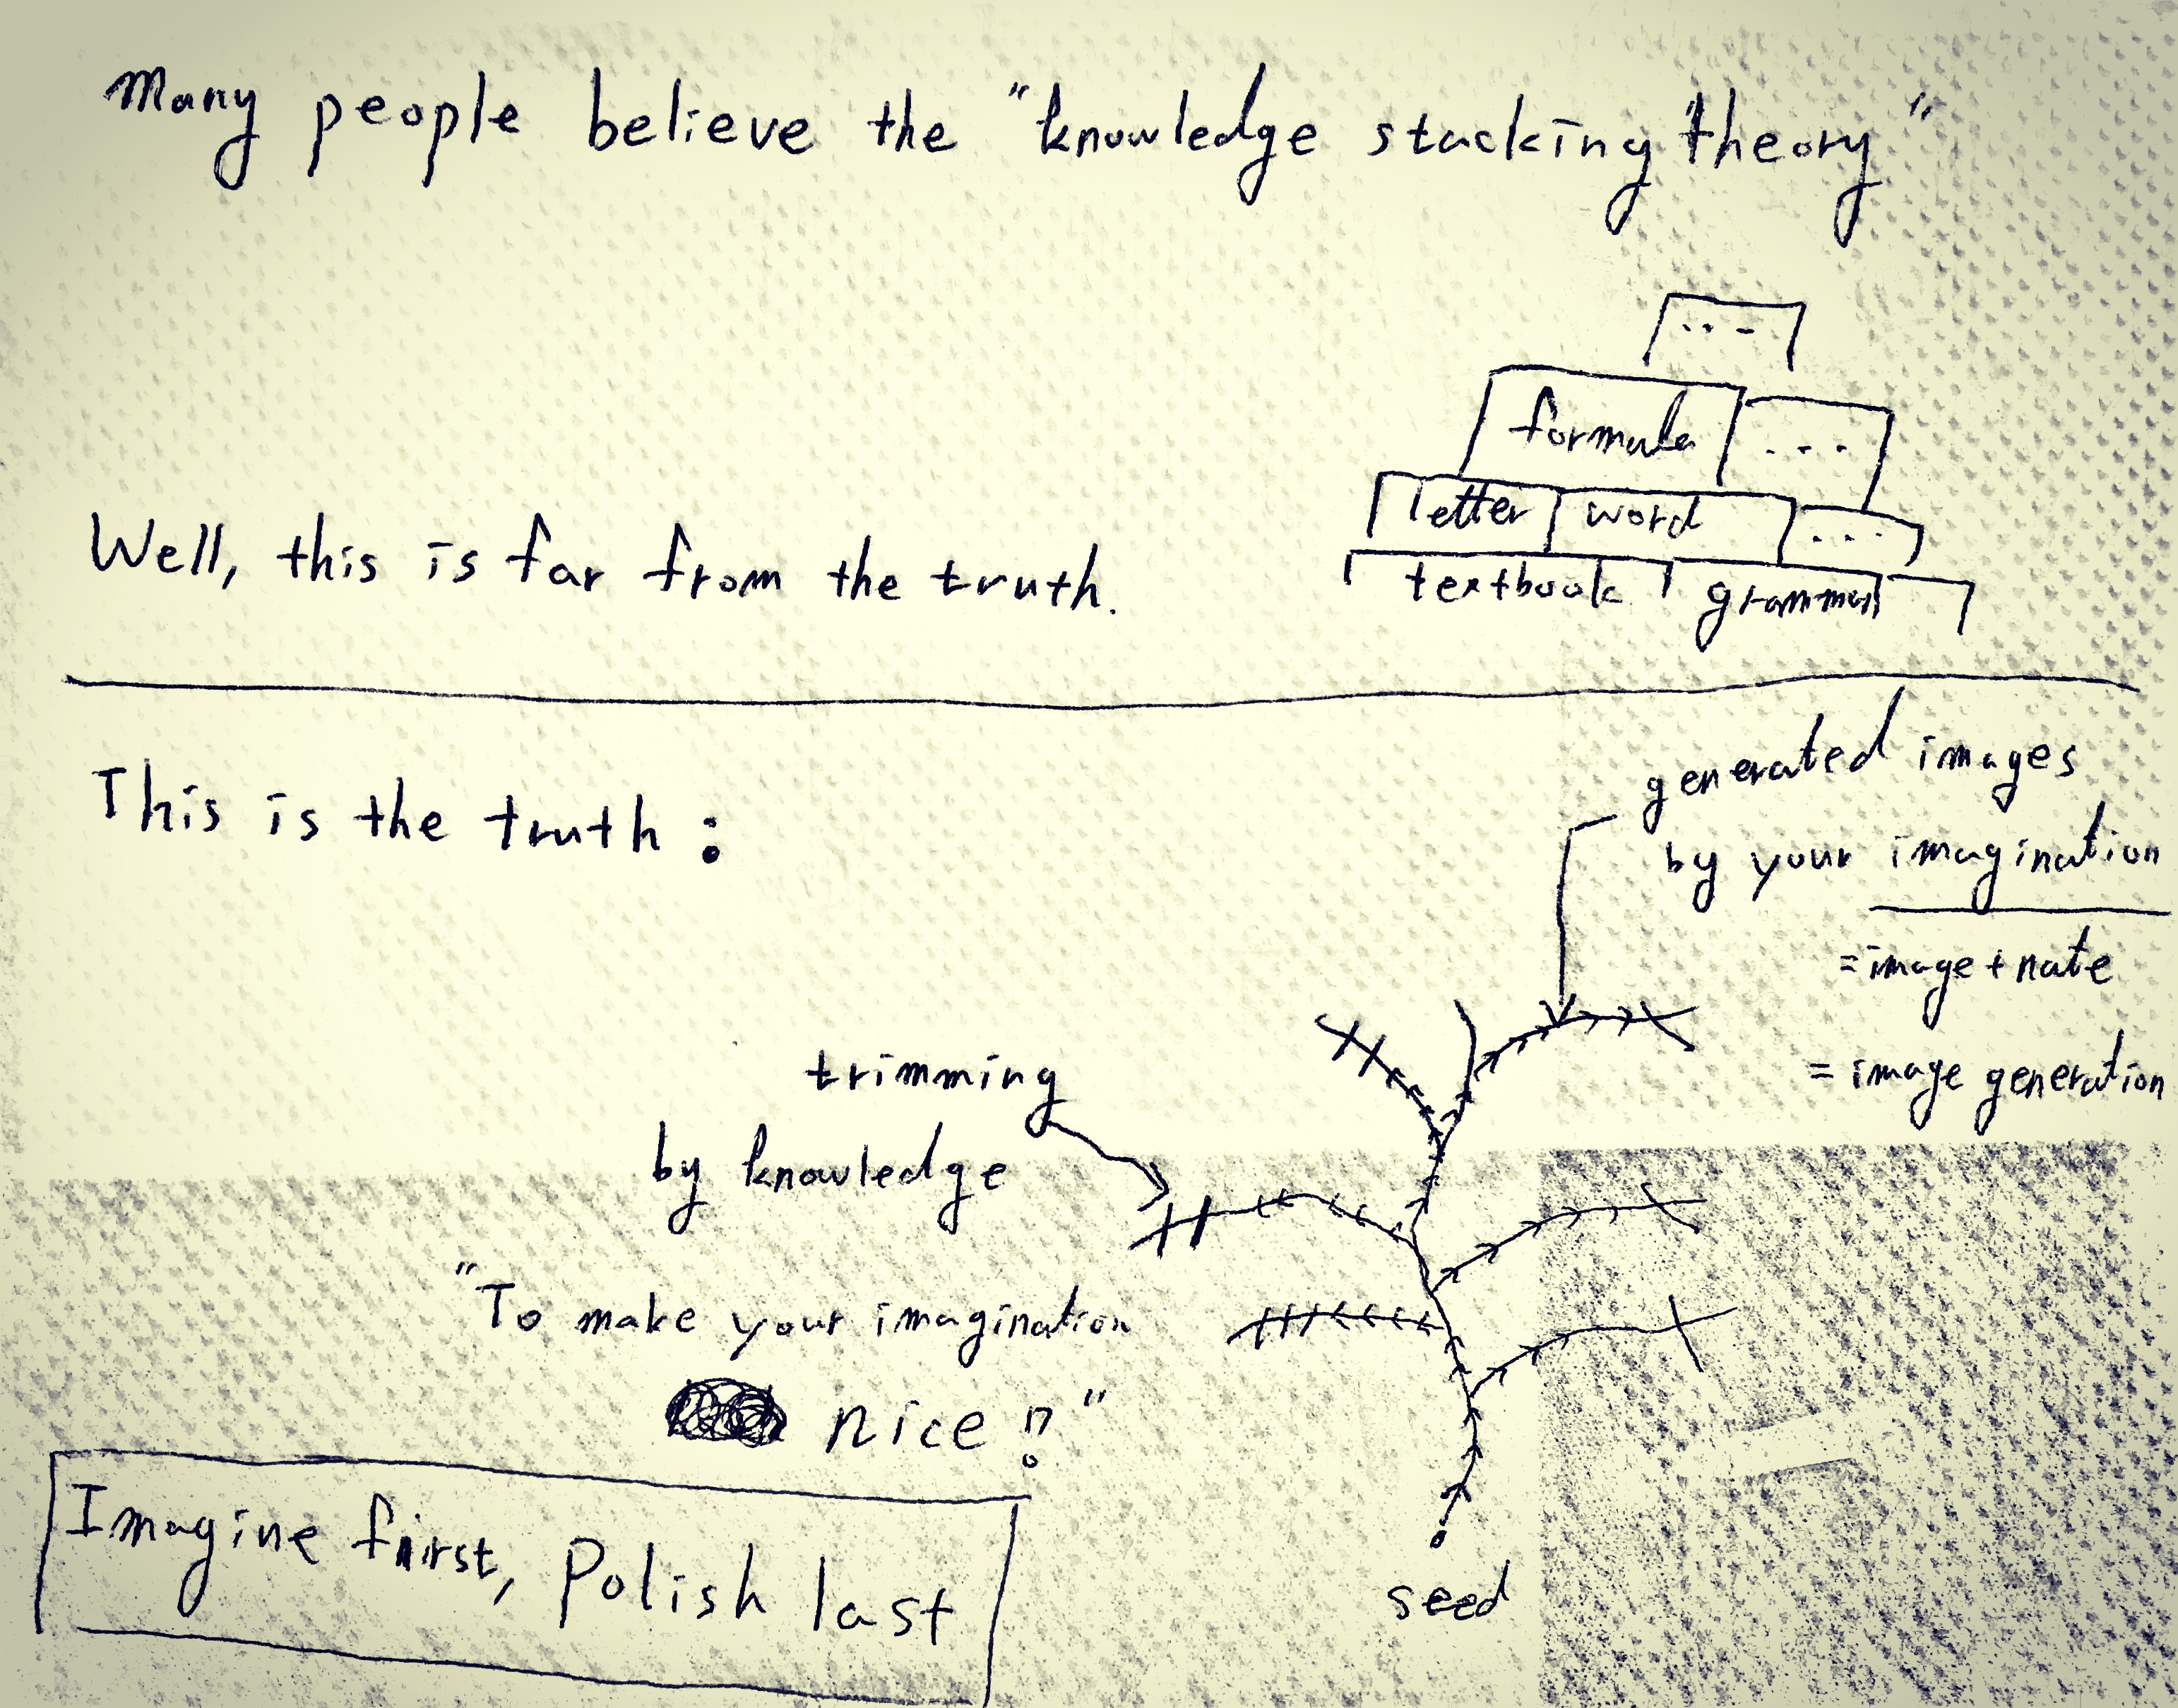 Many people believe the "knowledge stacking theory"
...
formula ...
letter word ...
textbook grammar
Well, this is far from the truth.
This is the truth:
generated images
by your imagination
=image+nate
= image generation
trimming
by knowledge
"To make your imagination
nice!!"
Imagine first, Polish last
seed